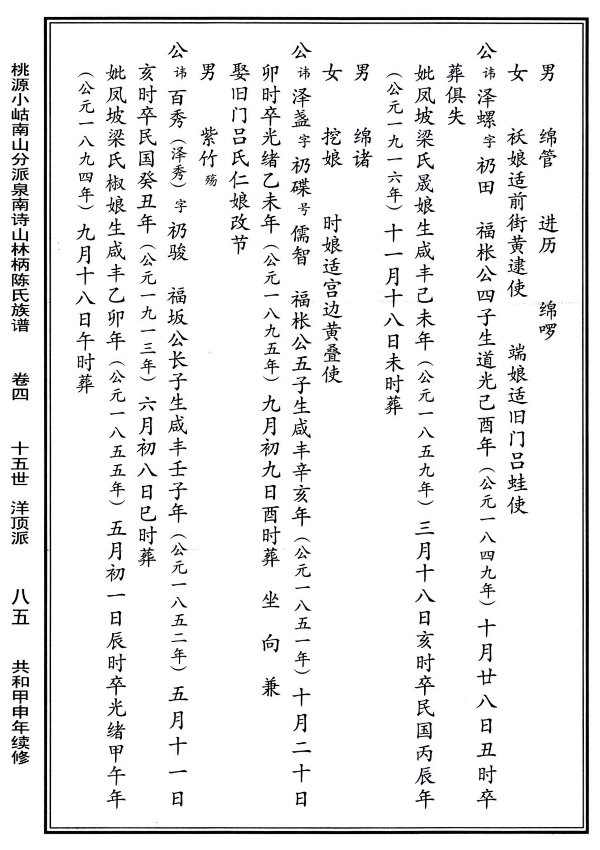 男　绵管　进历　绵啰
女　袄娘适前街黄建使　端娘适旧门吕蛙使
公讳泽螺字礽田　福枨公四子生道光己酉年（公元一八四九年）十月廿八日丑时卒
葬俱失
妣凤坡梁氏晟娘生咸丰己未年（公元一八五九年）三月十八日亥时卒民国丙辰年
（公元一九一六年）十一月十八日未时葬
男　绵诸
女　挖娘　时娘适宫边黄叠使
公讳泽盏字礽碟号儒智　福枨公五子生咸丰辛亥年（公元一八五一年）十月二十日
卯时卒光绪乙未年（公元一八九五年）九月初九日酉时葬　坐　向　兼
娶旧门吕氏仁娘改节
男　紫竹殇
公讳百秀（泽秀）字礽骏　福坂公长子生咸丰壬子年（公元一八五二年）五月十一日
亥时卒民国癸丑年（公元一九一三年）六月初八日巳时葬
妣凤坡梁氏椒娘生咸丰乙卯年（公元一八五五年）五月初一日辰时卒光绪甲午年
（公元一八九四年）九月十八日午时葬
桃源小岵南山分派泉南诗山林柄陈氏族谱　卷四　十五世　洋顶派　八五　共和甲申年续修